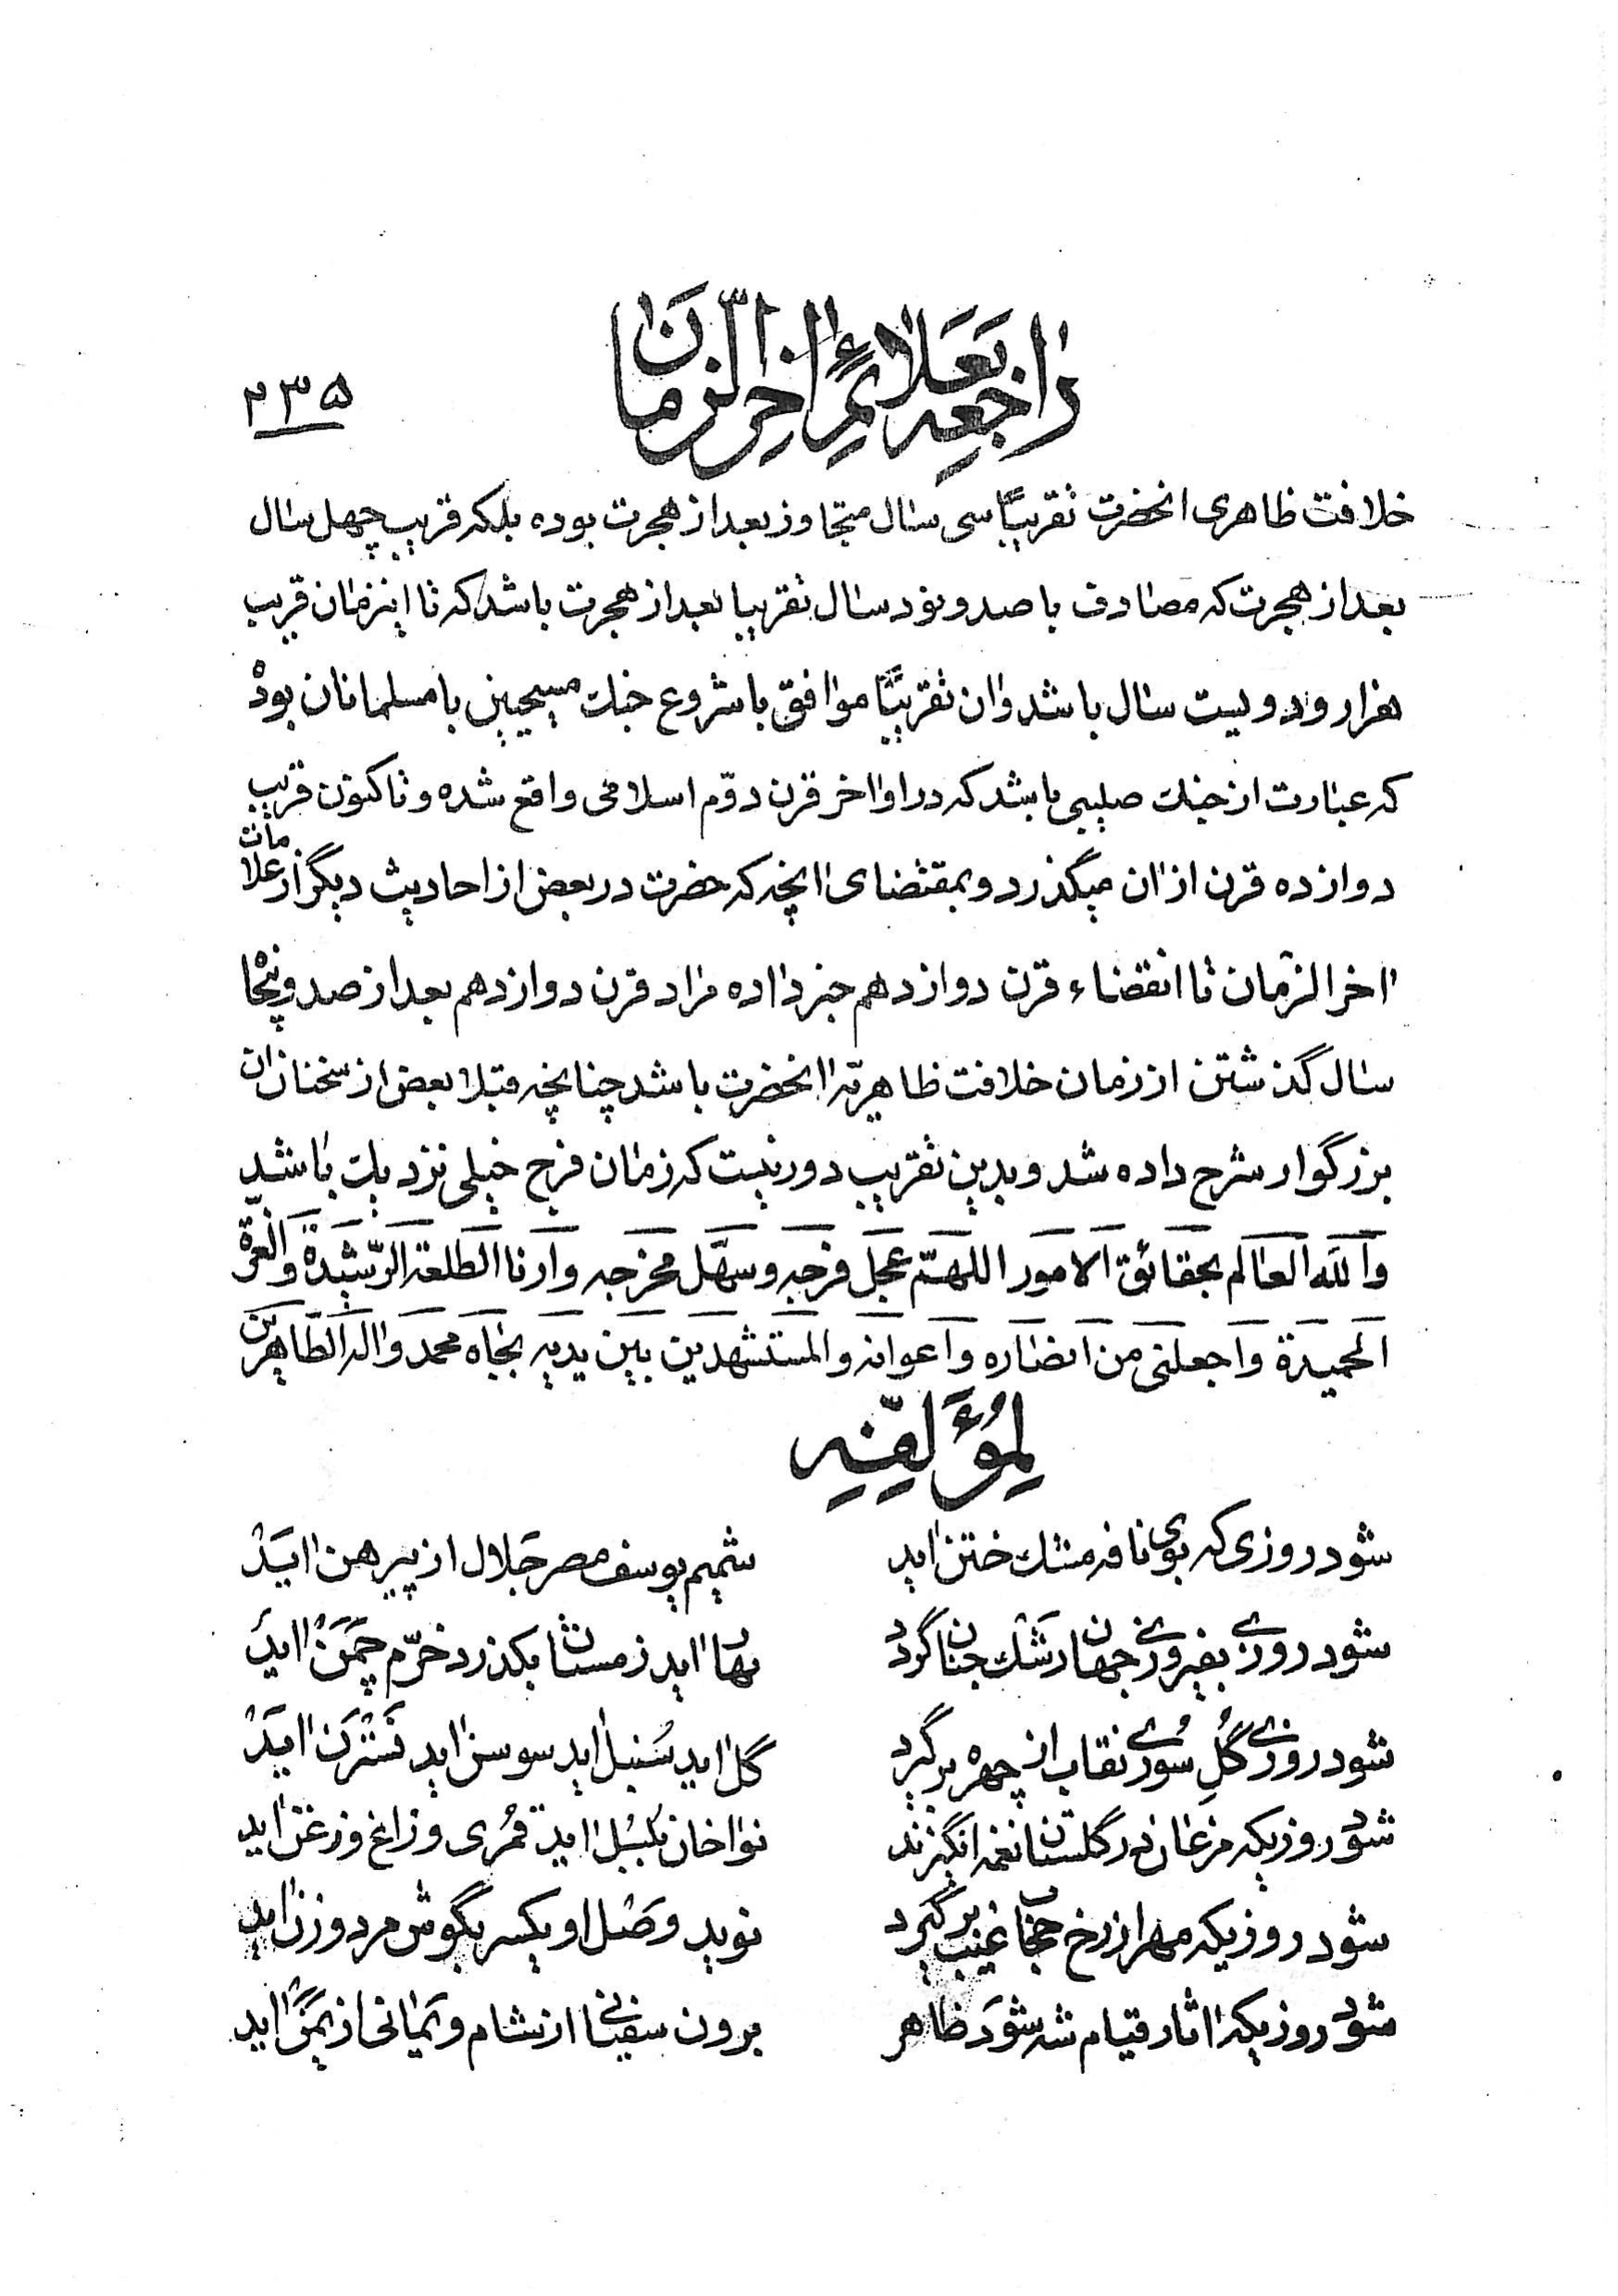 راجعه بعلائم اخر الزمان
۲۳۵
خلافت ظاهری انحضرت تقریبًا سی سال متجاوز بعد از هجرت بوده بلکه قریب چهل سال
بعد از هجرت که مصادف با صد و نود سال تقریبا بعد از هجرت باشد که تا اینزمان قریب
هزار و دویست سال باشد وان تقریبًا موافق با شروع جنک مسیحیین با مسلمانان بوده
که عبارت از جنک صلیبی باشد که در اواخر قرن دوّم اسلامی واقع شده و تاکنون قریب
دوازده قرن از ان میگذرد و بمقتضای انچه که حضرت در بعض از احادیث دیگر از علامات
اخر الزمان تا انقضاء قرن دوازدهم خبر داده مراد قرن دوازدهم بعد از صد و پنجاه
سال گذشتن از زمان خلافت ظاهریّه انحضرت باشد چنانچه قبلا بعض از سخنان ان
بزرگوار شرح داده شد و بدین تقریب دور نیست که زمان فرج خیلی نزدیک باشد
والله العالم بحقائق الامور اللهمّ عجل فرجه وسهّل مخرجه وارنا الطلعة الرّشیدة والغرّة
الحمیدة واجعلنی من انصاره واعوانه والمستشهدین بین یدیه بجاه محمد واله الطّاهرین
لِمُؤَلِّفِهِ
شود روزی که بوی نافه مشک ختن اید
شمیم یوسف مصر جلال از پیرهن اید
شود روزی بفیروزی جهان رشک جنان گردد
بهار اید زمستان بگذرد خرّم چمن اید
شود روزی گُلِ سُوری نقاب از چهره برگیرد
گل اید سُنبل اید سوسن اید نسترن اید
شود روزیکه مرغان در گلستان نغمه انگیزند
نواخان بُلبُل اید قمُری و زاغ و زغن اید
شود روزیکه مهر از رخ حجاب غیب برگیرد
نوید وصل او یکسر بگوش مرد و زن اید
شود روزیکه اثار قیام شه شود ظاهر
برون سفیانی از شام و یمانی از یمن اید